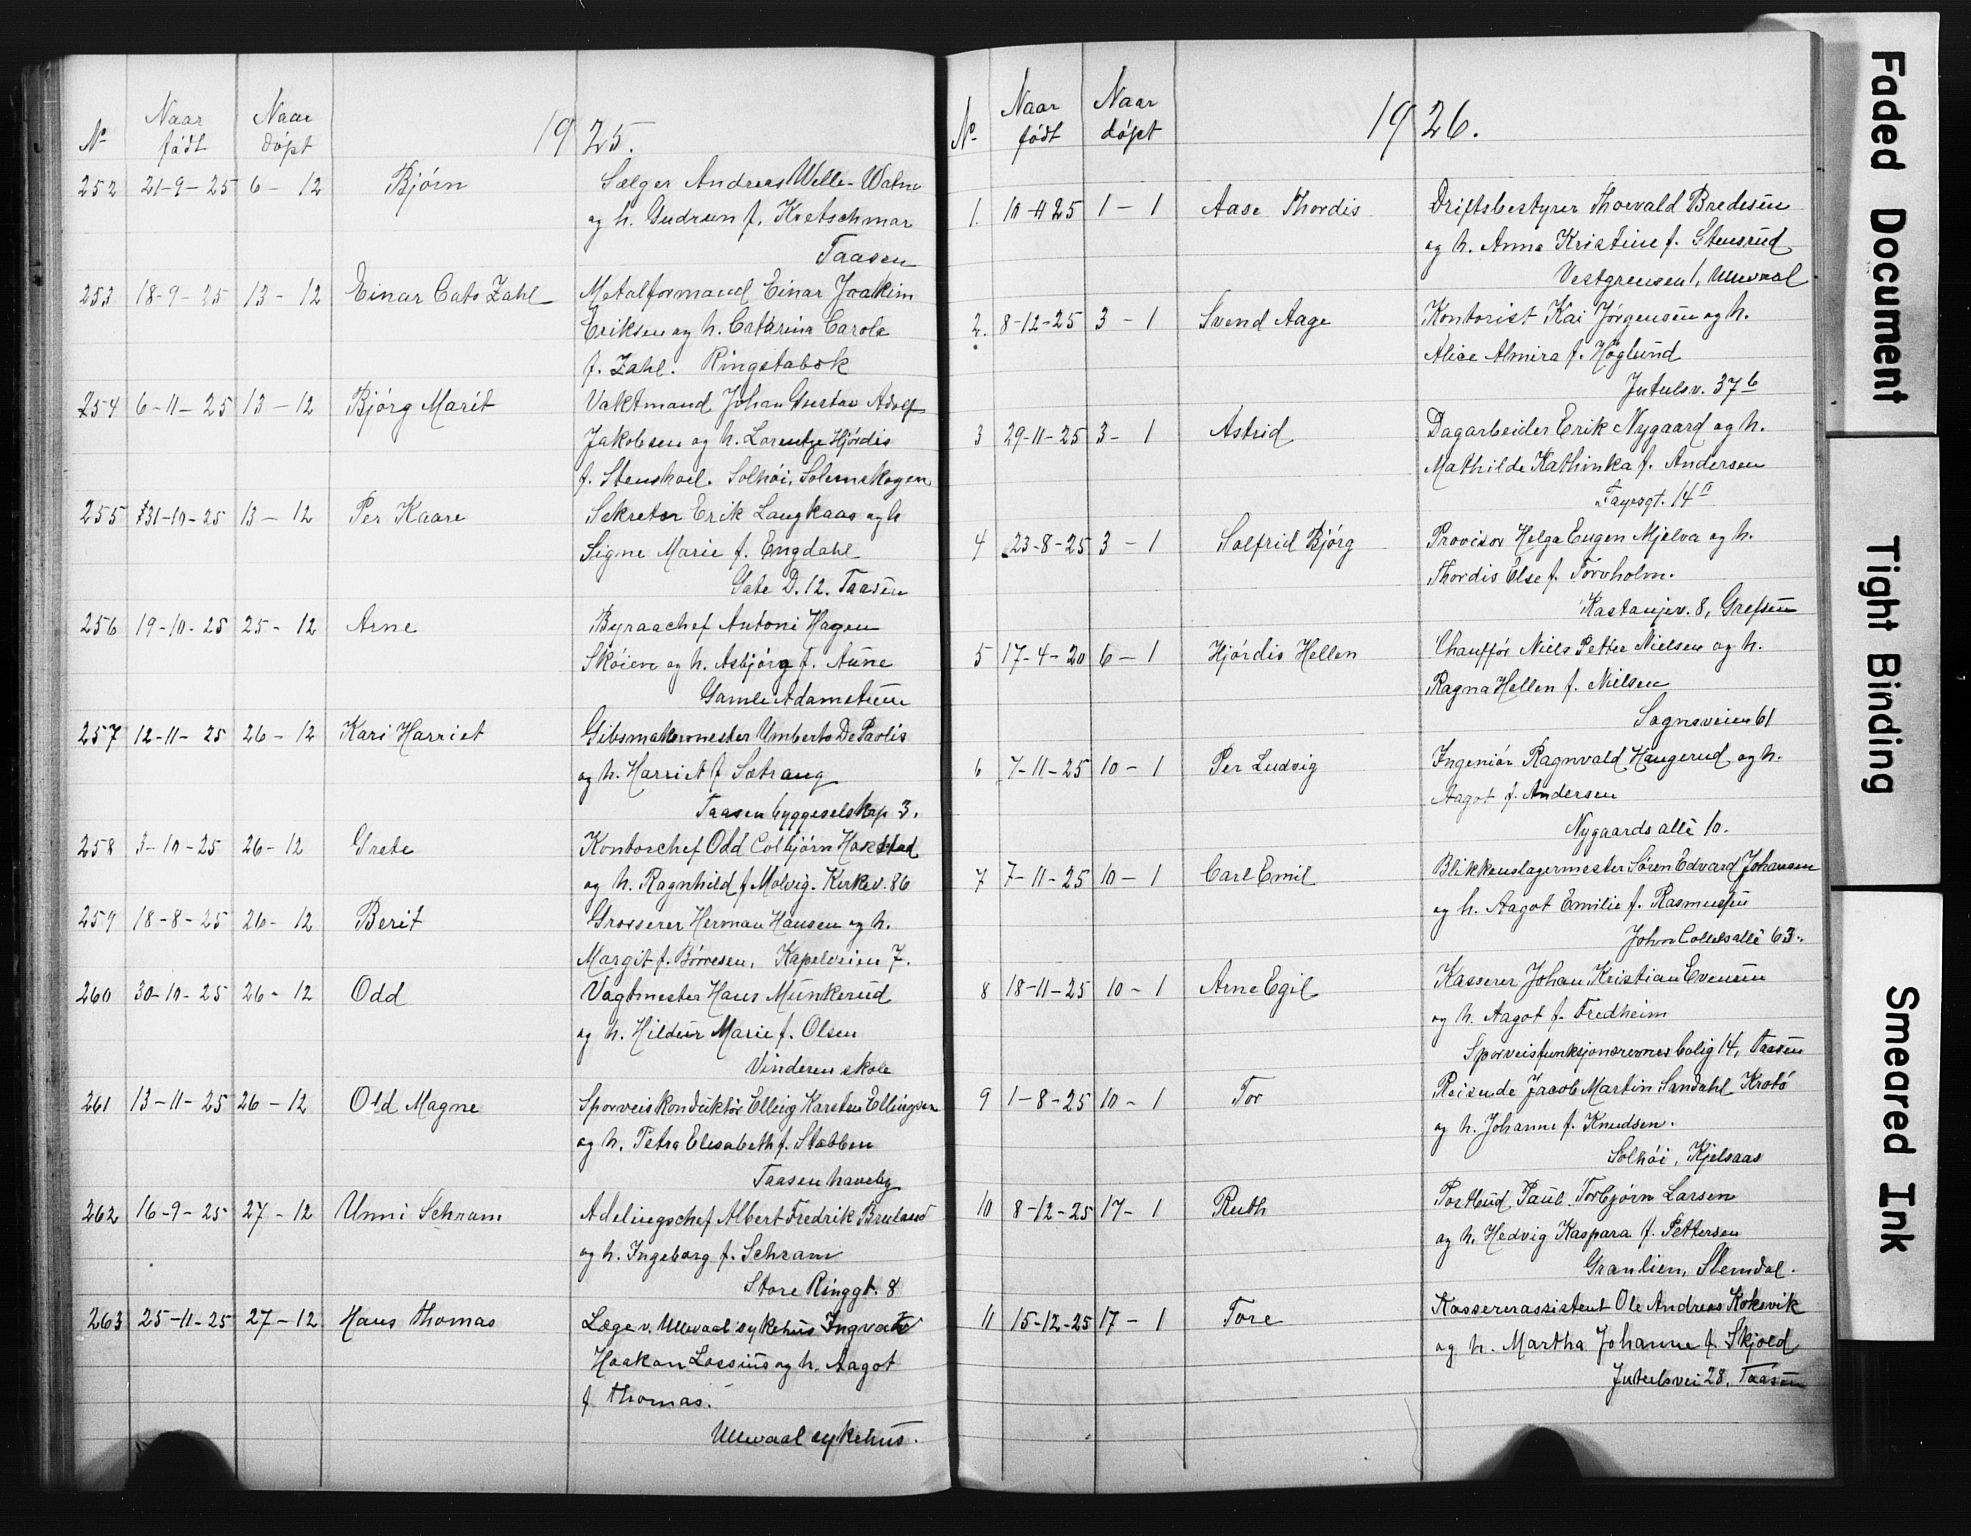 Nº Naar født Naar døpt 1925.
252 21-9-25 6-12 Bjørn Sælger Andreas Welle-Watne
og h. Gudrun f. Kretschmar
Taasen
253 18-9-25 13-12 Einar Cato Zahl Metalformand Einar Joakim
Eriksen og h. Catarina Carola
f. Zahl. Ringstabæk
254 6-11-25 13-12 Bjørg Marit Vaktmand Johan Gustav Adolf
Jakobsen og h. Lorentze Hjørdis
f. Solhøi, Solemskogen
255 31-10-25 13-12 Per Kaare Sekretær Erik Langkaas og h
Signe Marie f. Engdahl
Gate D. 12. Taasen
256 19-10-25 25-12 Arne Byraachef Antoni Hagen
Skøien og h. Asbjørg f. Aune
Gamle Adamstuen
257 12-11-25 26-12 Kari Harriet Gibsmakermester Umberto De Paolis
og h. Harriet f Sætrang
Taasen byggeselskap 3.
258 3-10-25 26-12 Grete Kontorchef Odd Colbjørn
og h. Ragnhild f Molvig. Kirkev. 86
259 18-8-25 26-12 Berit Grosserer Herman Hansen og h.
Margit f. Børresen, Kapelveien 7.
260 30-10-25 26-12 Odd Vagtmester Hans Munkerud
og h. Hildur Marie f. Olsen
Vinderen skole
261 13-11-25 26-12 Odd Magne Sporveiskonduktør Elling Karsten Ellingsen
og h. Petra Elisabeth f. Stabben
Taasen haveby
262 16-9-25 27-12 Unni Schram Adelingschef Albert Fredrik Bruland
og h. Ingeborg f. Schram
Store Ringgt. 8
263 25-11-25 27-12 Hans Thomas Læge v. Ullevaal sykehus Ingvald
Haakon Lossius og h. Aagot
f Thomas.
Ullevaal sykehus.
Nº Naar født Naar døpt 1926.
1. 10-11-25 1-1 Aase Thordis Driftsbestyrer Thorvald Bredesen
og h. Anna Kristine f. Stensrud
Vestgrensen 1, Ullevaal
2. 8-12-25 3-1 Svend Aage Kontorist Kai Jørgensen og h.
Alice Almira f. Höglund
Jutulsv. 37 b
3 29-11-25 3-1 Astrid Dagarbeider Erik Nygaard og h.
Mathilde Kathinka f. Andersen
14 II
4 23-8-25 3-1 Solfrid Bjørg Provisor Helge Eugen Mjelva og h.
Thordis Else f. Torvholm.
Kastanjev. 8, Grefsen
5 17-4-20 6-1 Hjørdis Hellen Chauffør Niels Petter Nielsen og h.
Ragna Hellen f. Nielsen
Sognsveien 61
6 7-11-25 10-1 Per Ludvig Ingeniør Ragnvald Haugerud og h.
Aagot f. Andersen
Nygaards allé 10.
7 7-11-25 10-1 Carl Emil Blikkenslagermester Søren Edvard Johansen
og h. Aagot Emilie f. Rasmussen
John Colletsallé 63.
8 18-11-25 10-1 Arne Egil Kasserer Johan Kristian Evensen
og h. Aagot f. Fredheim
Sporveisfunksjonærernes bolig 14, Taasen
9 1-8-25 10-1 Tor Reisende Jacob Martin Sandahl Krobø
og h. Johanne f. Knudsen.
Solhøi, Kjelsaas
10 8-12-25 17-1 Ruth Postbud Paul Torbjørn Larsen
og h. Hedvig Kaspara f. Pettersen
Granlien, Slemdal.
11 15-12-25 17-1 Tore Kassererassistent Ole Andreas Koksvik
og h. Martha Johanne f. Skjold
Jutulsvei 28, Taasen
Faded Document
Tight Binding
Smeared Ink